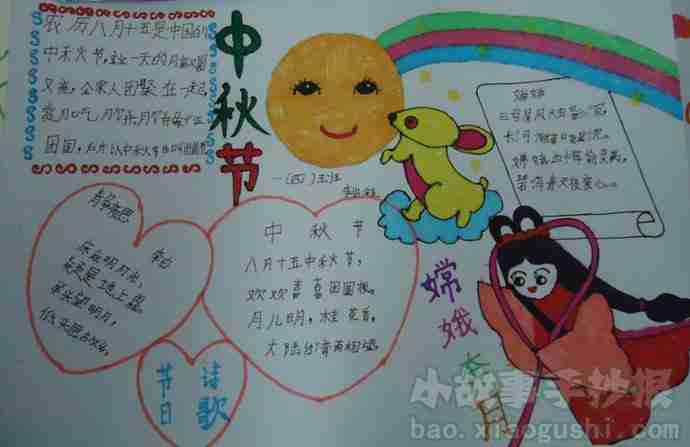 农历八月十五是中国的
中秋节,这一天的月亮又圆
又亮,全家人团聚在一起,
赏月吃月饼,月饼
团圆,
中秋节
(四)
嫦娥
云母屏风烛影深,
长河渐落晓星沉。
嫦娥应悔偷灵药,
碧海青天夜夜心。
静夜思
李白
床前明月光,
疑是地上霜。
举头望明月,
低头思故乡。
中秋节
八月十五中秋节,
欢欢喜喜团圆夜。
月儿明,桂花香,
大陆台湾
诗歌
节日
嫦娥
月
小故事手抄报
bao.xiaogushi.com